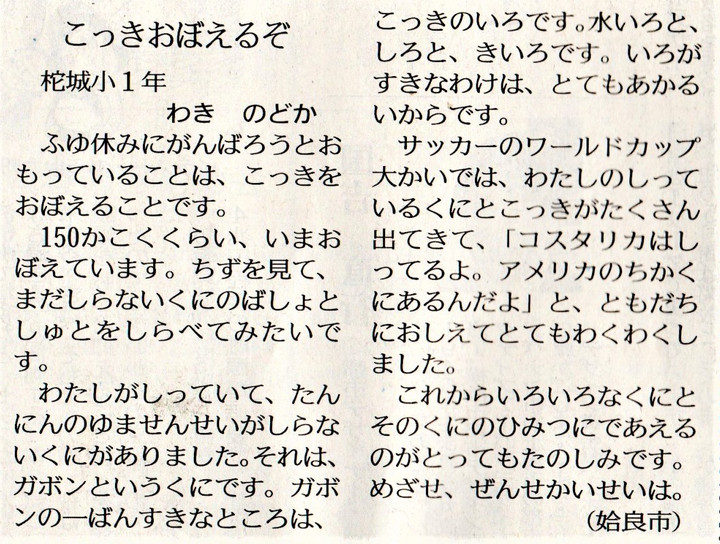 こっきおぼえるぞ
柁城小1年
わき　のどか
ふゆ休みにがんばろうとお
もっていることは、こっきを
おぼえることです。
150かこくくらい、いまお
ぼえています。ちずを見て、
まだしらないくにのばしょと
しゅとをしらべてみたいで
す。
わたしがしっていて、たん
にんのゆませんせいがしらな
いくにがありました。それは、
ガボンというくにです。ガボ
ンの一ばんすきなところは、
こっきのいろです。水いろと、
しろと、きいろです。いろが
すきなわけは、とてもあかる
いからです。
サッカーのワールドカップ
大かいでは、わたしのしって
いるくにとこっきがたくさん
出てきて、「コスタリカはし
ってるよ。アメリカのちかく
にあるんだよ」と、ともだち
におしえてとてもわくわくし
ました。
これからいろいろなくにと
そのくにのひみつにであえる
のがとってもたのしみです。
めざせ、ぜんせかいせいは。
（姶良市）